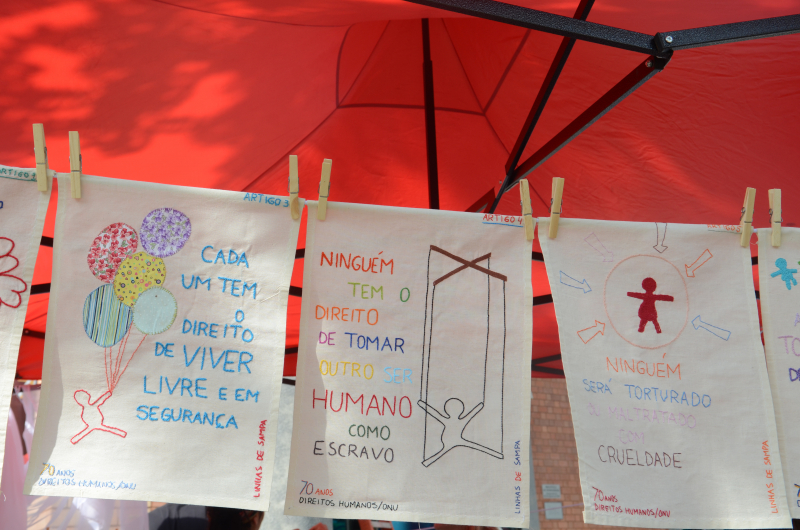 ARTIGO 3
CADA
UM TEM
O
DIREITO
DE VIVER
LIVRE E EM
SEGURANÇA
LINHAS DE SAMPA
70 ANOS
DIREITOS HUMANOS/ONU
ARTIGO 4
NINGUÉM
TEM O
DIREITO
DE TOMAR
OUTRO SER
HUMANO
COMO
ESCRAVO
LINHAS DE SAMPA
70 ANOS
DIREITOS HUMANOS/ONU
NINGUÉM
SERÁ TORTURADO
OU MALTRATADO
COM
CRUELDADE
LINHAS DE SAMPA
70 ANOS
DIREITOS HUMANOS/ONU